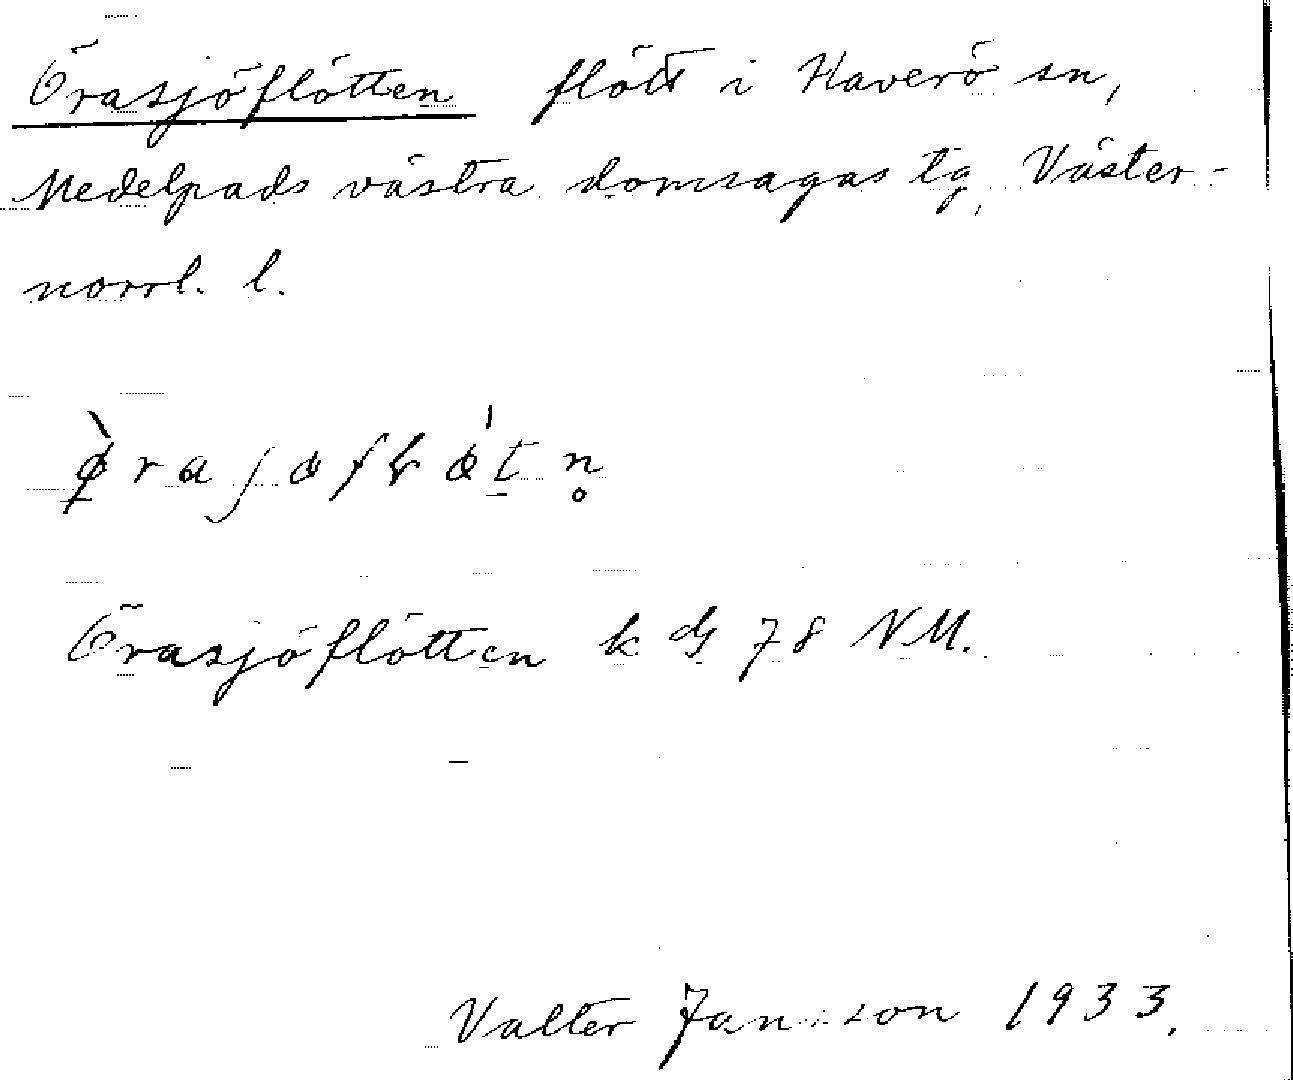 Örasjöflötten flött i Haverö sn,
Medelpads västra domsagas tg, Väster-
norrl. l.
Örasjöflötten k db 78 NM.
Valter Jansson 1933.